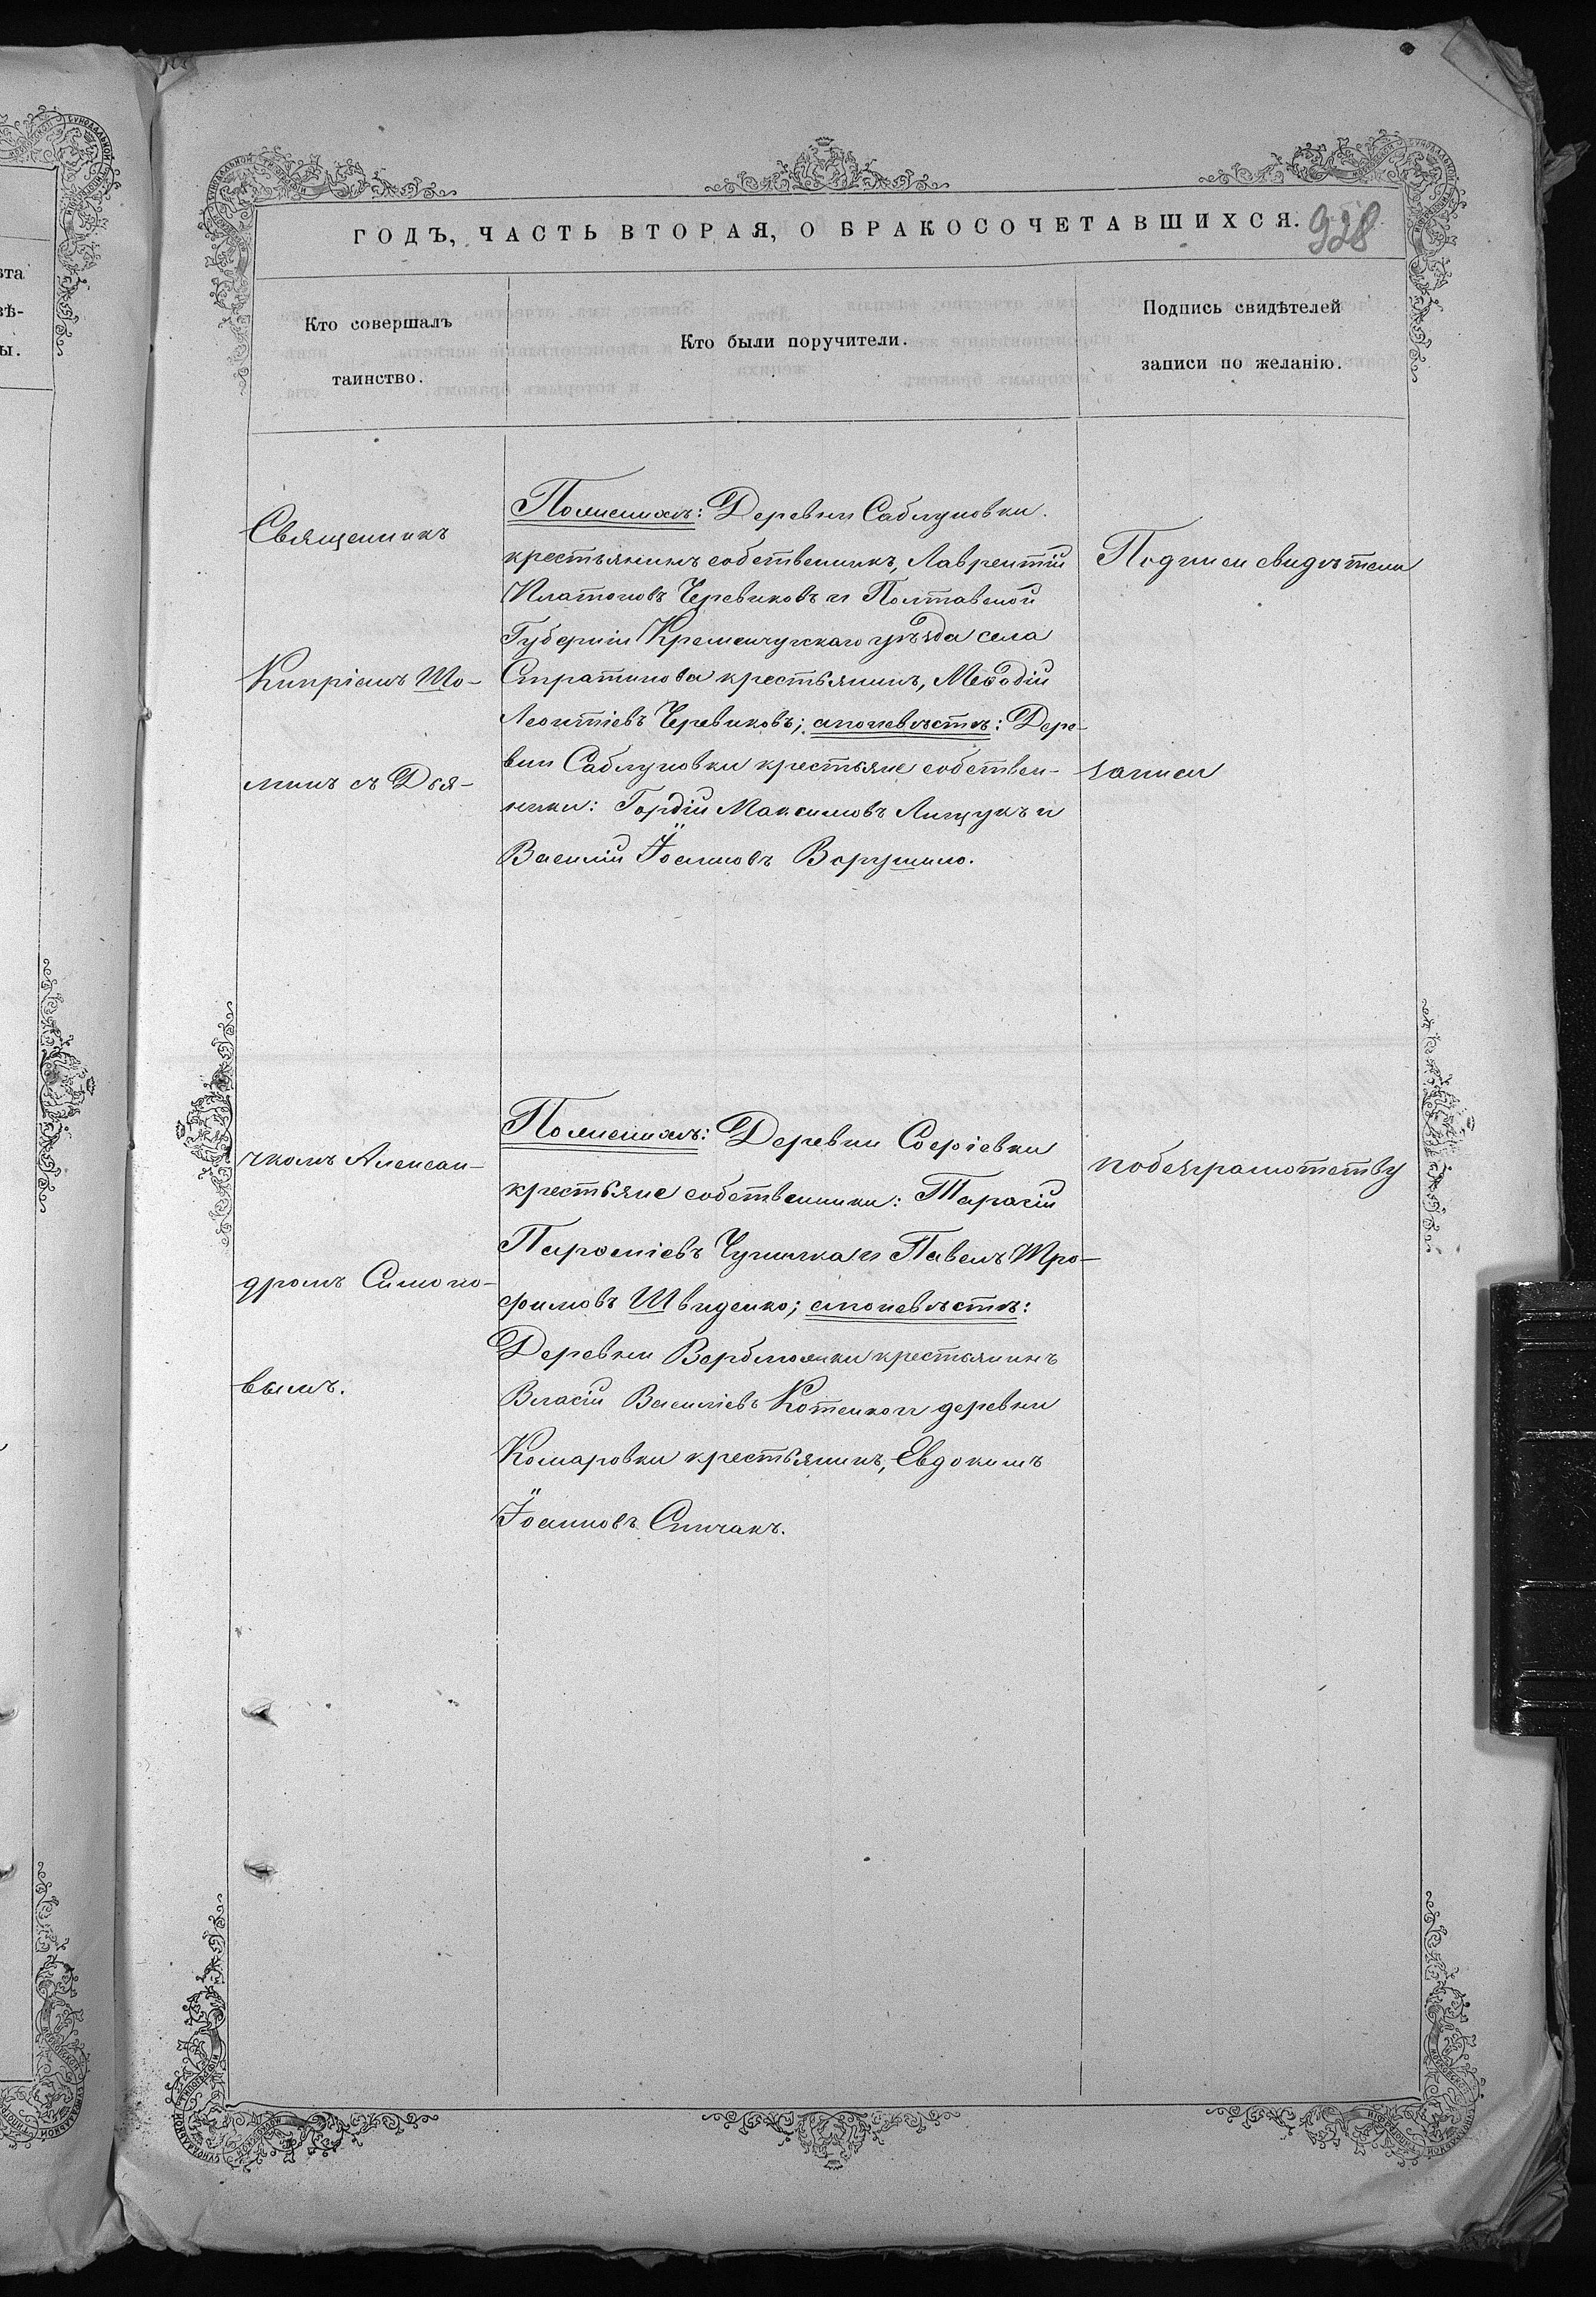 ГОДЪ, ЧАСТЬ ВТОРАЯ, О БРАКОСОЧЕТАВШИХСЯ. 928
Кто совершалъ
таинство.
Кто были поручители.
Подпись свидѣтелей
записи по желанію.
Священникъ
Кипріанъ Шо-
минъ съ Дья-
чкомъ Алексан-
дромъ Симоно-
вымъ.
По женихѣ: Деревни Саблуковки
крестьянинъ собственникъ, Лаврентій
Платоновъ Черевиковъ и Полтавской
Губерніи Кременчугскаго уѣзда села
крестьянинъ, Меѳодій
Леонтіевъ Черевиковъ; а по невѣстѣ: Дере-
вни Саблуковки крестьяне собствен-
ники: Гордій Максимовъ Лищукъ и
Василій Іоанновъ Ворушило.
По женихѣ: Деревни Софіевки
крестьяне собственники: Тарасій
Чугилка и Павелъ Тро-
фимовъ Швиденко; а по невѣстѣ:
Деревни Верблюжки крестьянинъ
Власій Василіевъ Котенко и деревни
Комаровки крестьянинъ, Евдокимъ
Іоанновъ Спичакъ.
Подписи свидѣтели
записи
по безграмотству